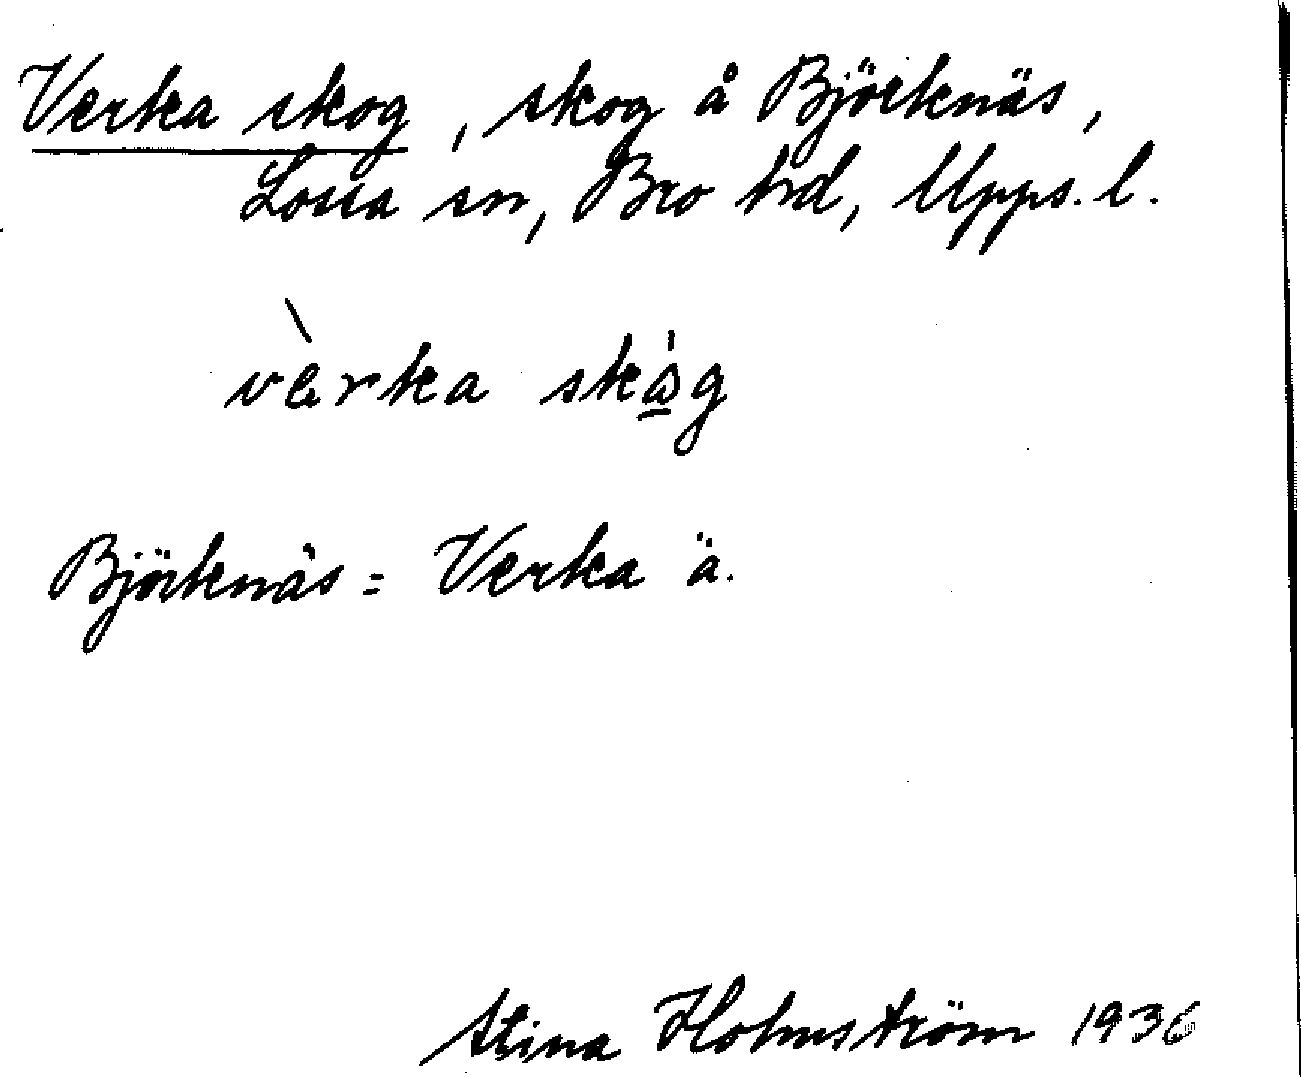 Verka skog, skog å Björknäs,
Lossa sn, Bro hd, Upps. l.
vèrka skóg
Björknäs = Verka ä.
Stina Holmström 1936